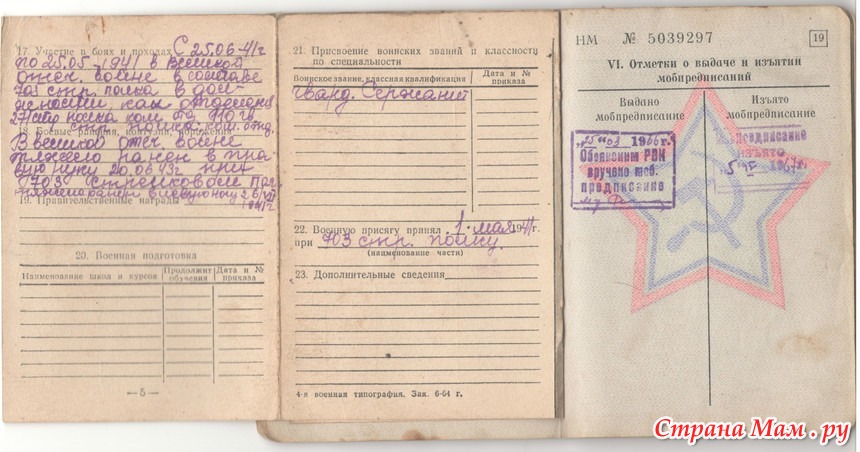 17. Участие в боях и походах С 25.06-41г
по 25.05-1941 в Великой
отеч. войне в составе
703 стр. полка в дол-
жности ком. отделения
18. Боевые ранения, контузии, поражения
В великой отеч. войне
тяжело ранен в пра-
вую руку 20.06.43г при
703 Стрелковом
19. Правительственные награды
20. Военная подготовка
Наименование школ и курсов
Продолжит обучения
Дата и № приказа
— 5 —
21. Присвоение воинских званий и классность
по специальности
Воинское звание, классная квалификация
Дата и № приказа
Гвард. Сержант
22. Военную присягу принял 1 мая 1941г.
при 703 стр. полку.
(наименование части)
23. Дополнительные сведения
4-я военная типография. Зак. 6-64 г.
НМ № 5039297
19
VI. Отметки о выдаче и изъятии
мобпредписаний
Выдано
мобпредписание
Изъято
мобпредписание
"25" 03 1966г.
РВК
вручено моб.
предписание
Мобпредписание
ИЗЪЯТО
"5" 1967г.
Страна Мам.ру